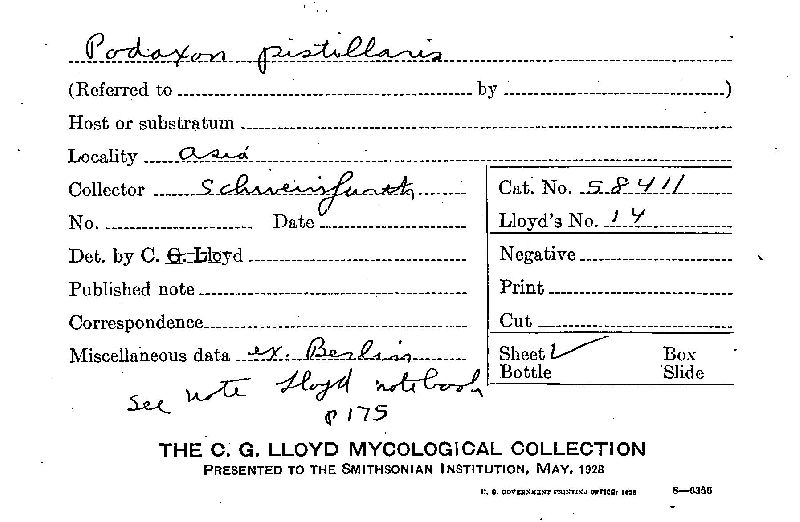 Podaxon pistillaris
(Referred to by )
Host or substratum
Locality Asia
Collector Schweinfurth
Cat. No. 58411
No. Date
Lloyd's No. 14
Det. by C. G. Lloyd
Negative
Published note
Print
Correspondence
Cut
Miscellaneous data ex. Berlin
Sheet ✓ Box
Bottle Slide
See note Lloyd notebook
p 175
THE C. G. LLOYD MYCOLOGICAL COLLECTION
PRESENTED TO THE SMITHSONIAN INSTITUTION, MAY, 1928
U. S. GOVERNMENT PRINTING OFFICE: 1928 8—6356